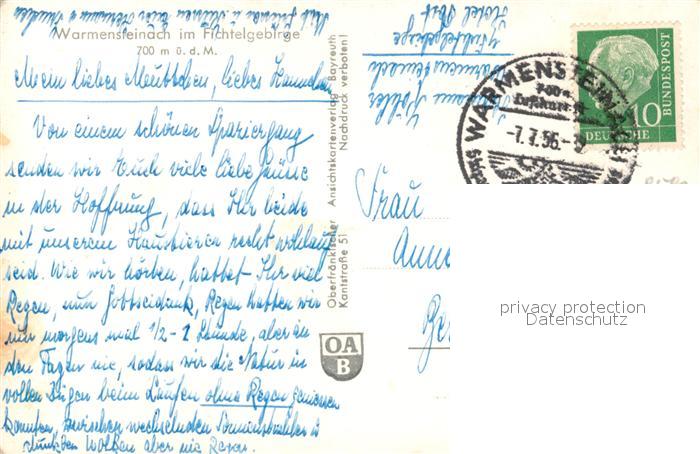 Warmensteinach im Fichtelgebirge
700 m ü. d. M.
Mein liebes Meuttchen, liebes Hannchen
Von einem schönen Spaziergang
senden wir Euch viele liebe Grüsse
in der Hoffnung, dass Ihr beide
mit unserem Haustieren recht wohlauf
seid. Wie wir hörten, hattet Ihr viel
Regen, nun Gottseidank, Regen hatten wir
nur morgens mal 1/2 - 1 Stunde, aber in
den Tagen nie, sodass wir die Natur in
vollen Zügen beim Laufen ohne Regen geniessen
konnten, zwischen wechselnden
dunklen Wolken aber nie Regen.
Oberfränkischer Ansichtskartenverlag Bayreuth
Kantstraße 51 Nachdruck verboten!
OA
B
Hotel Post
Fichtelgebirge
Warmensteinach
Köhler
WARMENSTEIN
700 m
Luftkurort
-7.7.56.-
10
DEUTSCHE
BUNDESPOST
Frau
privacy protection
Datenschutz